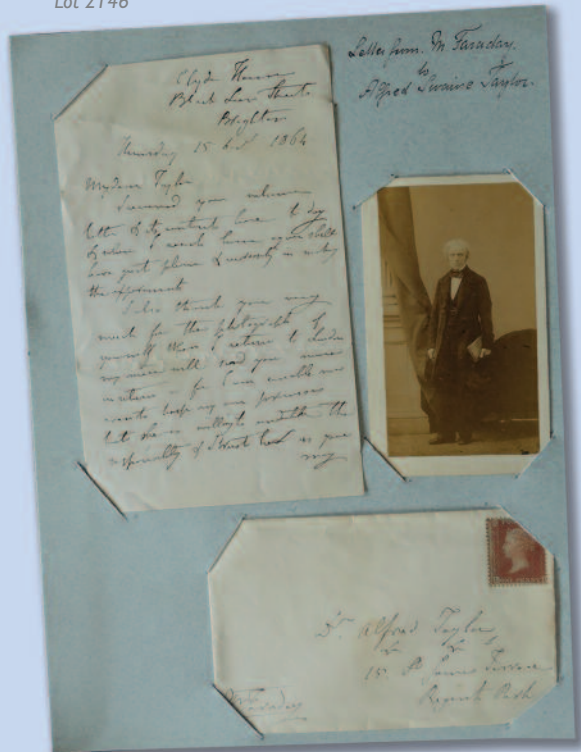 Lot 2146
Letter from M. Faraday.
to
Alfred Swaine Taylor.
Clyde House
Black Lion Street
Brighton
Thursday 15 1864
My dear Taylor
I received your welcome
letter & its contents here to day
& when I reach home again shall
have great pleasure & in making
the experiment
I also thank you very
much for the photograph of
yourself When I return to London
my niece will send you mine
in return - for I am unable
to keep my own promises
but she is the
responsibility of I trust as you
my
Dr. Alfred Taylor
15 St James Terrace
Regents Park
M Faraday